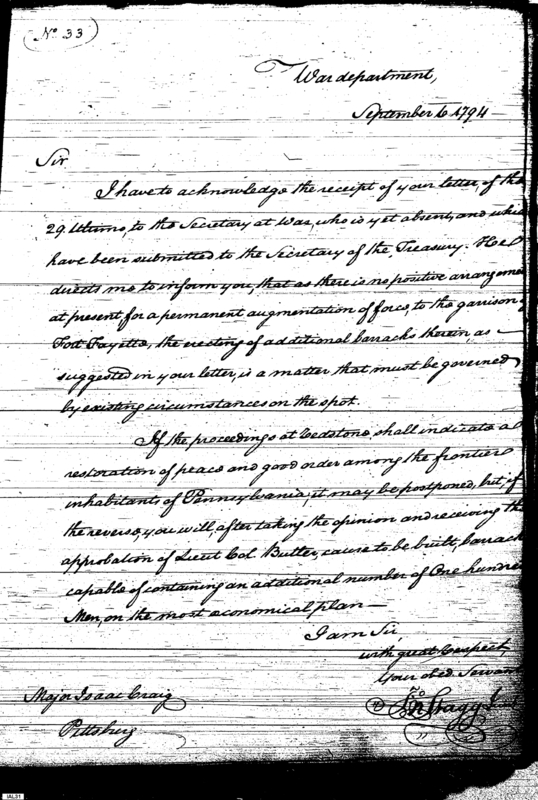 No 33
War department,
September 6 1794
Sir
I have to acknowledge the receipt of your letter of the
29 Ultimo, to the Secretary at War, who is yet absent, and which
have been submitted to the Secretary of the Treasury. He
directs me to inform you, that as there is no positive arrangeme
at present for a permanent augmentation of force, to the garrison
Fort Fayette, the erecting of additional barracks therein, as
suggested in your letter, is a matter that must be governed
by existing circumstances on the spot.
If the proceedings at Redstone, shall indicate a
restoration of peace and good order among the frontier
inhabitants of Pennsylvania, it may be postponed, but, if
the reverse, you will, after taking the opinion and receiving the
approbation of Lieut Col. Butler, cause to be built, barrack
capable of containing an additional number of One hundre
Men, on the most economical plan—
I am Sir,
with great Respect,
Your obed. Servan
Jno Stagg Jr
Major Isaac Craig
Pittsburg
IAL31